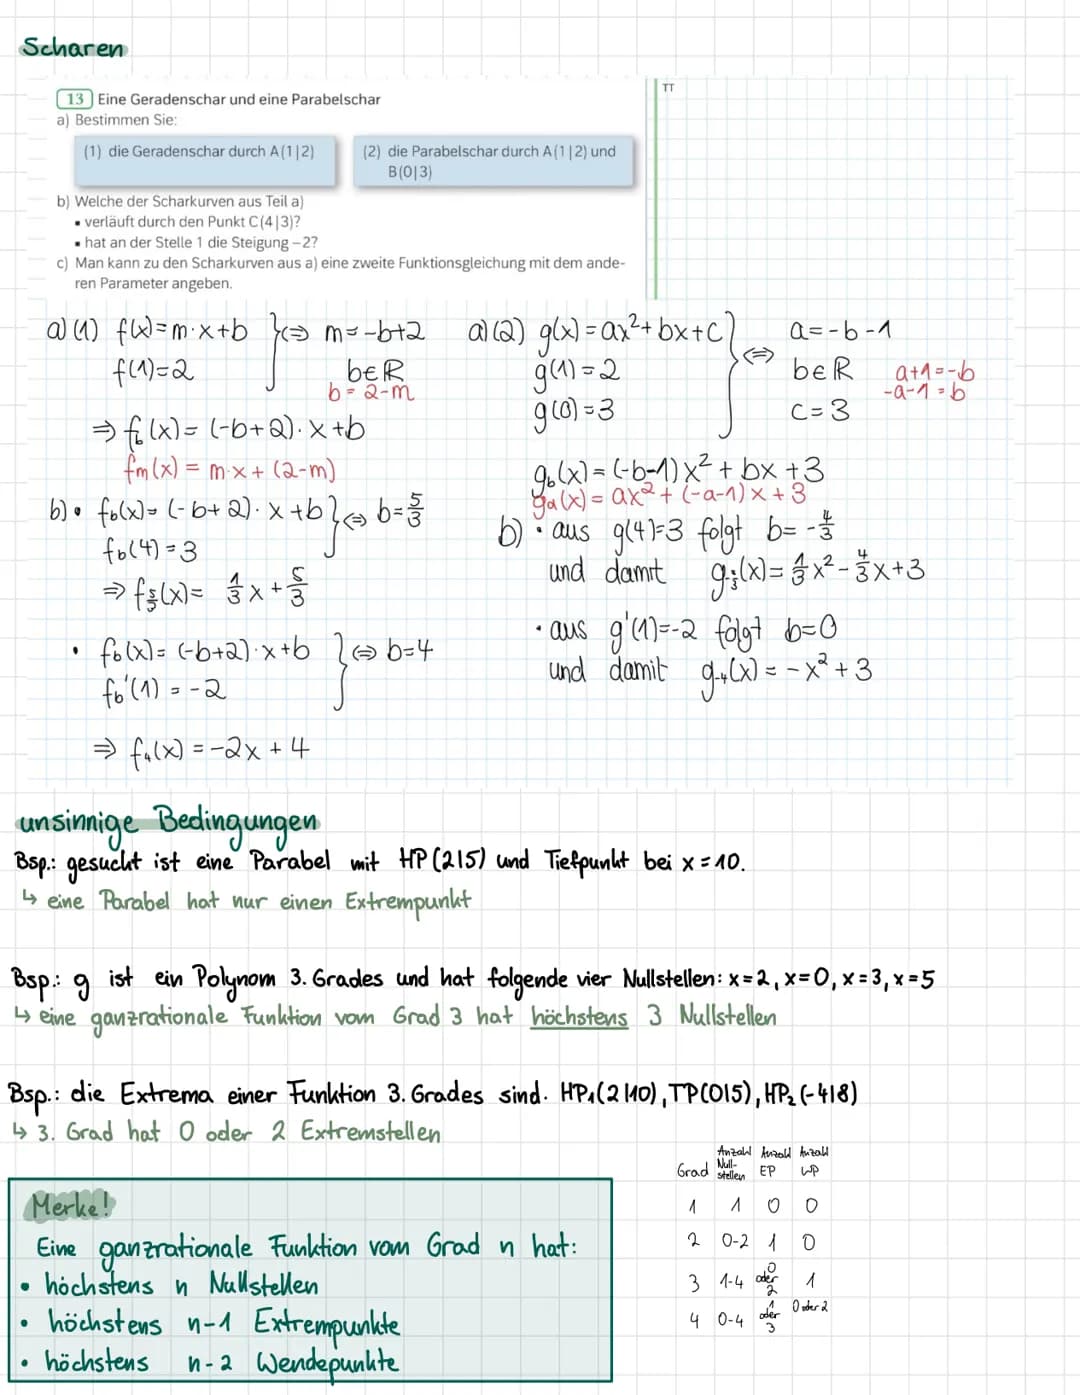 Scharen
13 Eine Geradenschar und eine Parabelschar
a) Bestimmen Sie:
(1) die Geradenschar durch A(1|2)
(2) die Parabelschar durch A(1|2) und
B(0|3)
b) Welche der Scharkurven aus Teil a)
• verläuft durch den Punkt C(4|3)?
• hat an der Stelle 1 die Steigung –2?
c) Man kann zu den Scharkurven aus a) eine zweite Funktionsgleichung mit dem ande-
ren Parameter angeben.
TT
a) (1) f(x)=m·x+b } ⇔ m=-b+2
f(1)=2 b∈ℝ
b=2-m
⇒ f_b(x)= (-b+2)·x+b
fm(x) = m·x+(2-m)
b)• f_b(x)= (-b+2)·x+b } ⇔ b=5/3
f_b(4)=3
⇒ f_5/3(x)= 1/3 x + 5/3
• f_b(x)= (-b+2)·x+b } ⇔ b=4
f_b'(1) = -2
⇒ f_4(x) = -2x + 4
a) (2) g(x)=ax²+bx+c } ⇔ a=-b-1
g(1)=2 b∈ℝ a+1=-b
-a-1=b
g(0)=3 c=3
g_b(x)= (-b-1)x²+bx+3
g_a(x)= ax²+(-a-1)x+3
b) • aus g(4)=3 folgt b= -4/3
und damit g_-4/3(x)= 1/3 x² - 4/3 x+3
• aus g'(1)=-2 folgt b=0
und damit g_-4(x) = -x²+3
unsinnige Bedingungen
Bsp.: gesucht ist eine Parabel mit HP(2|5) und Tiefpunkt bei x=10.
↳ eine Parabel hat nur einen Extrempunkt
Bsp.: g ist ein Polynom 3. Grades und hat folgende vier Nullstellen: x=2, x=0, x=3, x=5
↳ eine ganzrationale Funktion vom Grad 3 hat höchstens 3 Nullstellen
Bsp.: die Extrema einer Funktion 3. Grades sind. HP₁(2|10), TP(0|5), HP₂(-4|8)
↳ 3. Grad hat 0 oder 2 Extremstellen
Merke!
Eine ganzrationale Funktion vom Grad n hat:
• höchstens n Nullstellen
• höchstens n-1 Extrempunkte
• höchstens n-2 Wendepunkte
Grad Anzahl Null-stellen Anzahl EP Anzahl WP
1 1 0 0
2 0-2 1 0
3 1-4 0 oder 2 1
4 0-4 1 oder 3 0 oder 2